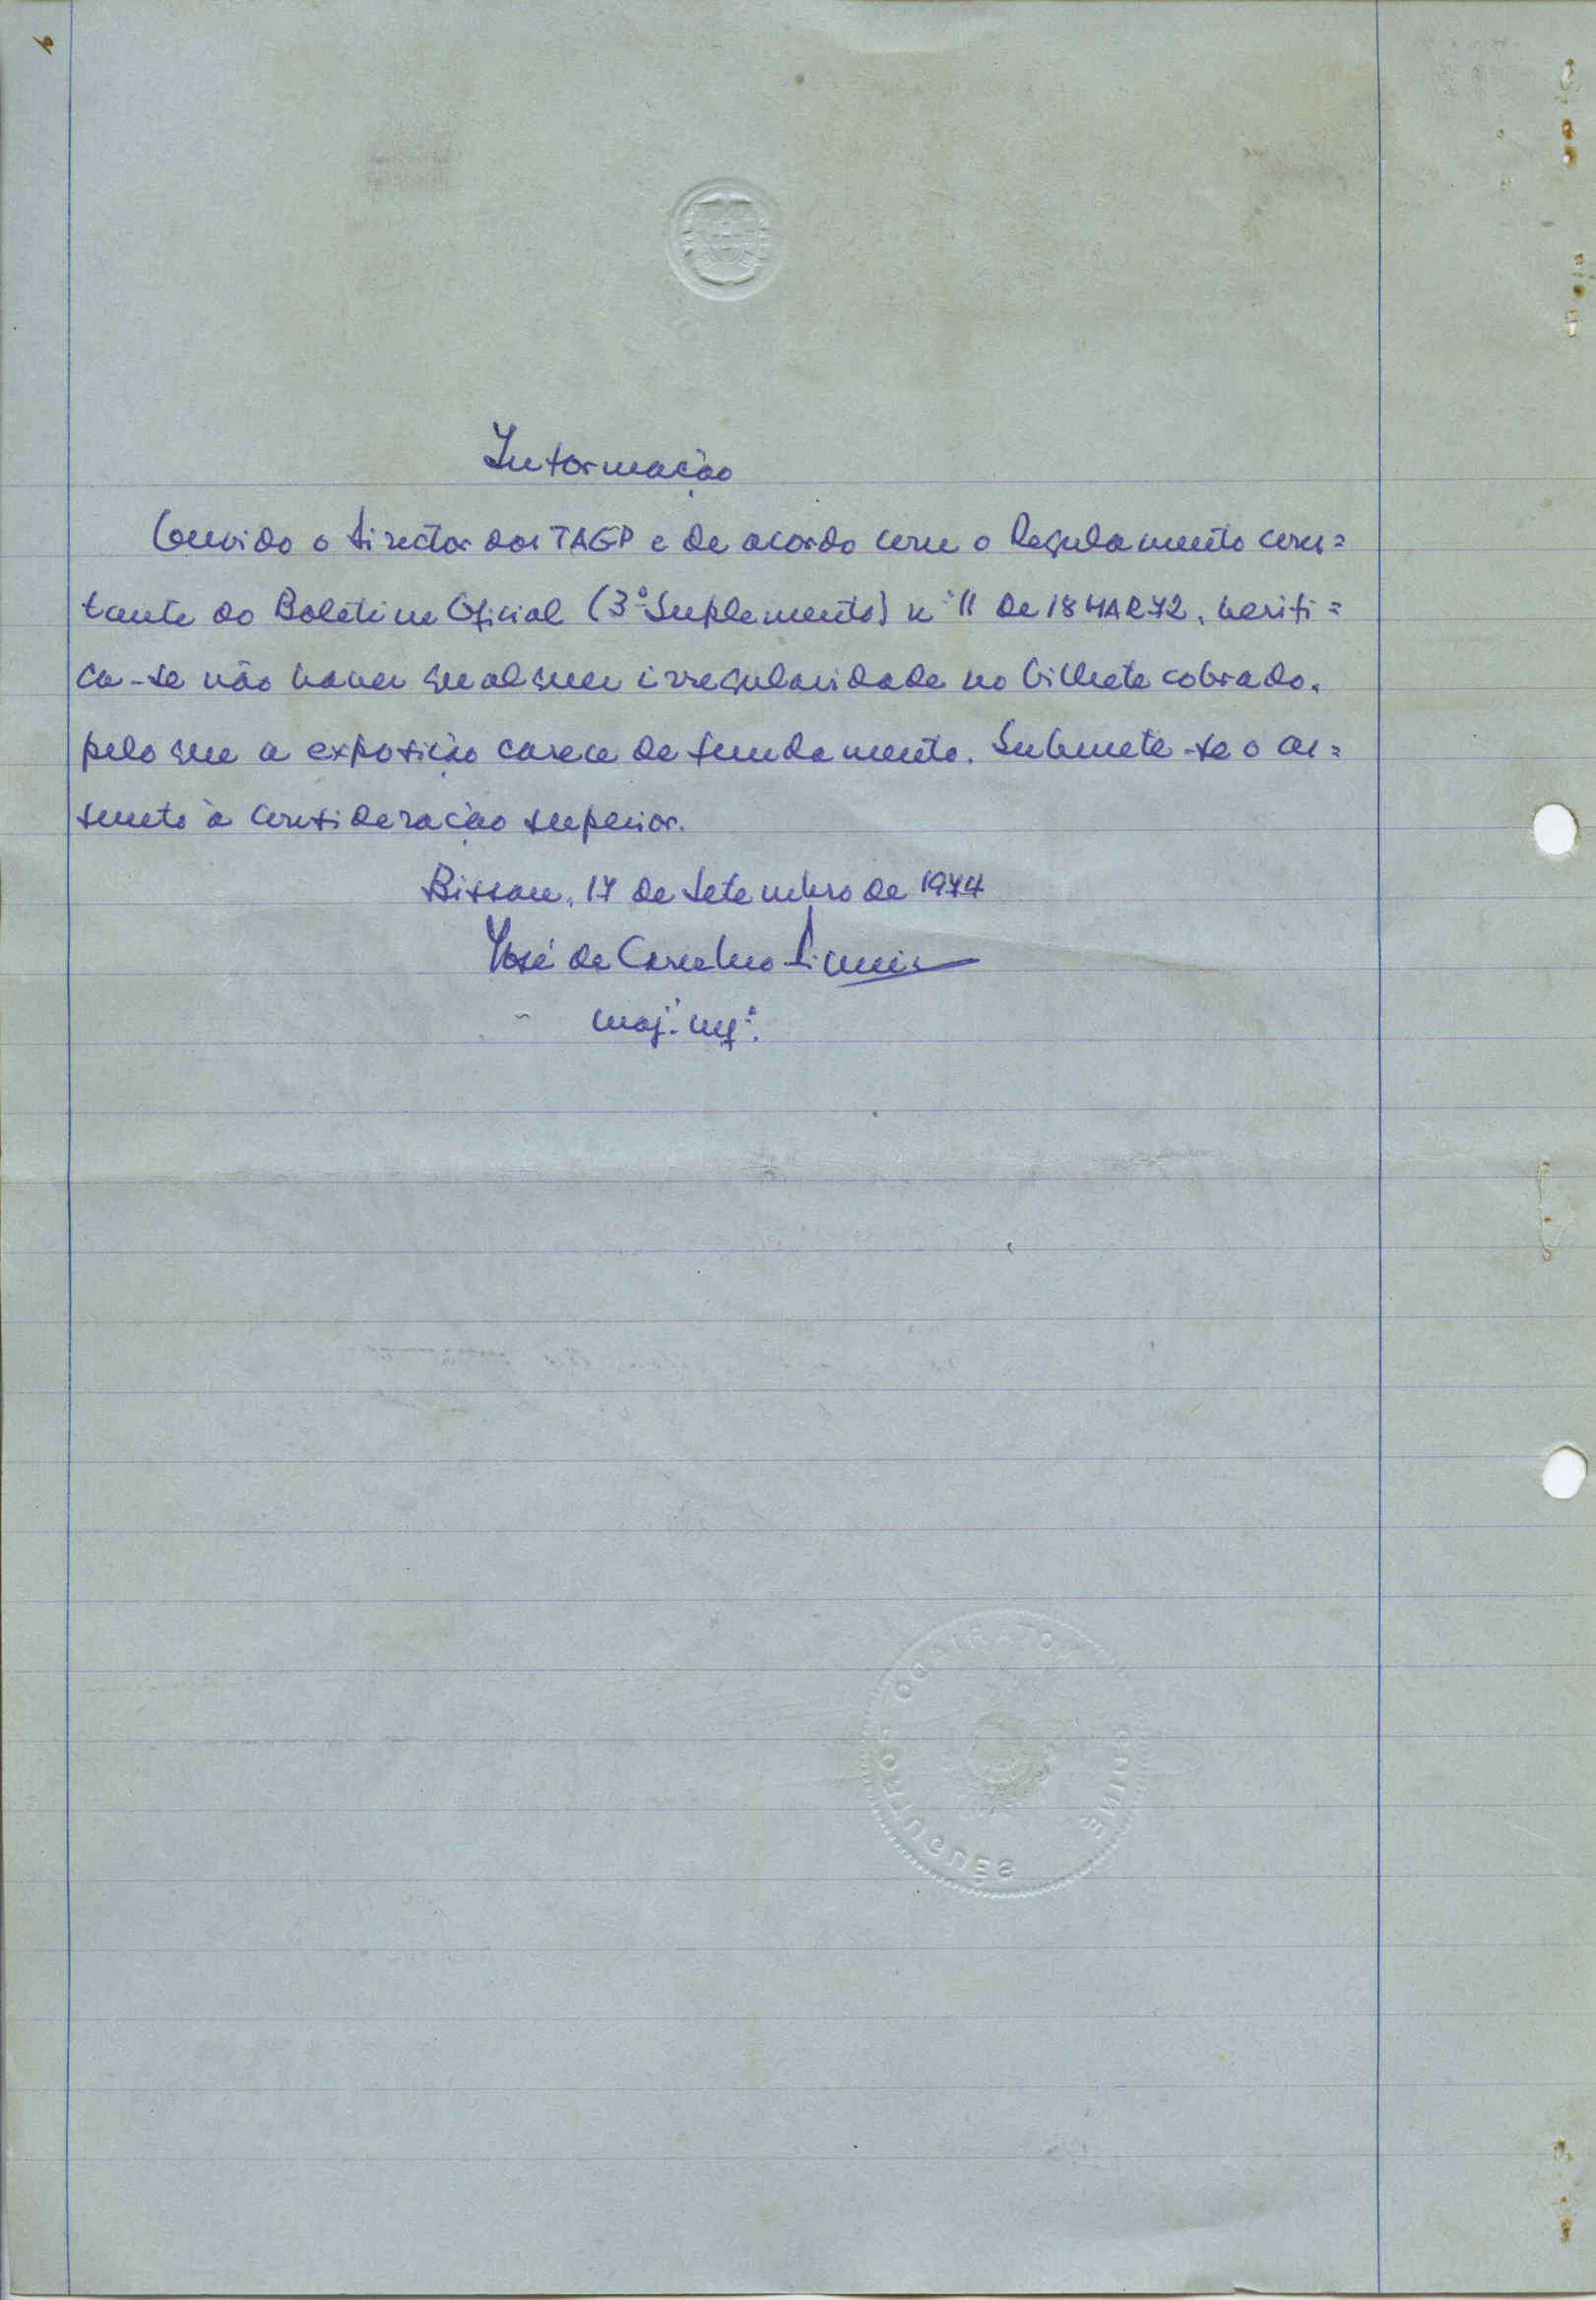 Informação
Ouvido o Director dos TAGP e de acordo com o Regulamento cons=
tante do Boletim Oficial (3º Suplemento) nº 11 de 18MAR72, verifi=
ca-se não haver qualquer irregularidade no bilhete cobrado,
pelo que a exposição carece de fundamento. Submete-se o as=
sunto à consideração superior.
Bissau, 17 de Setembro de 1974
José de
maj.
GUINÉ
PORTUGUÊS